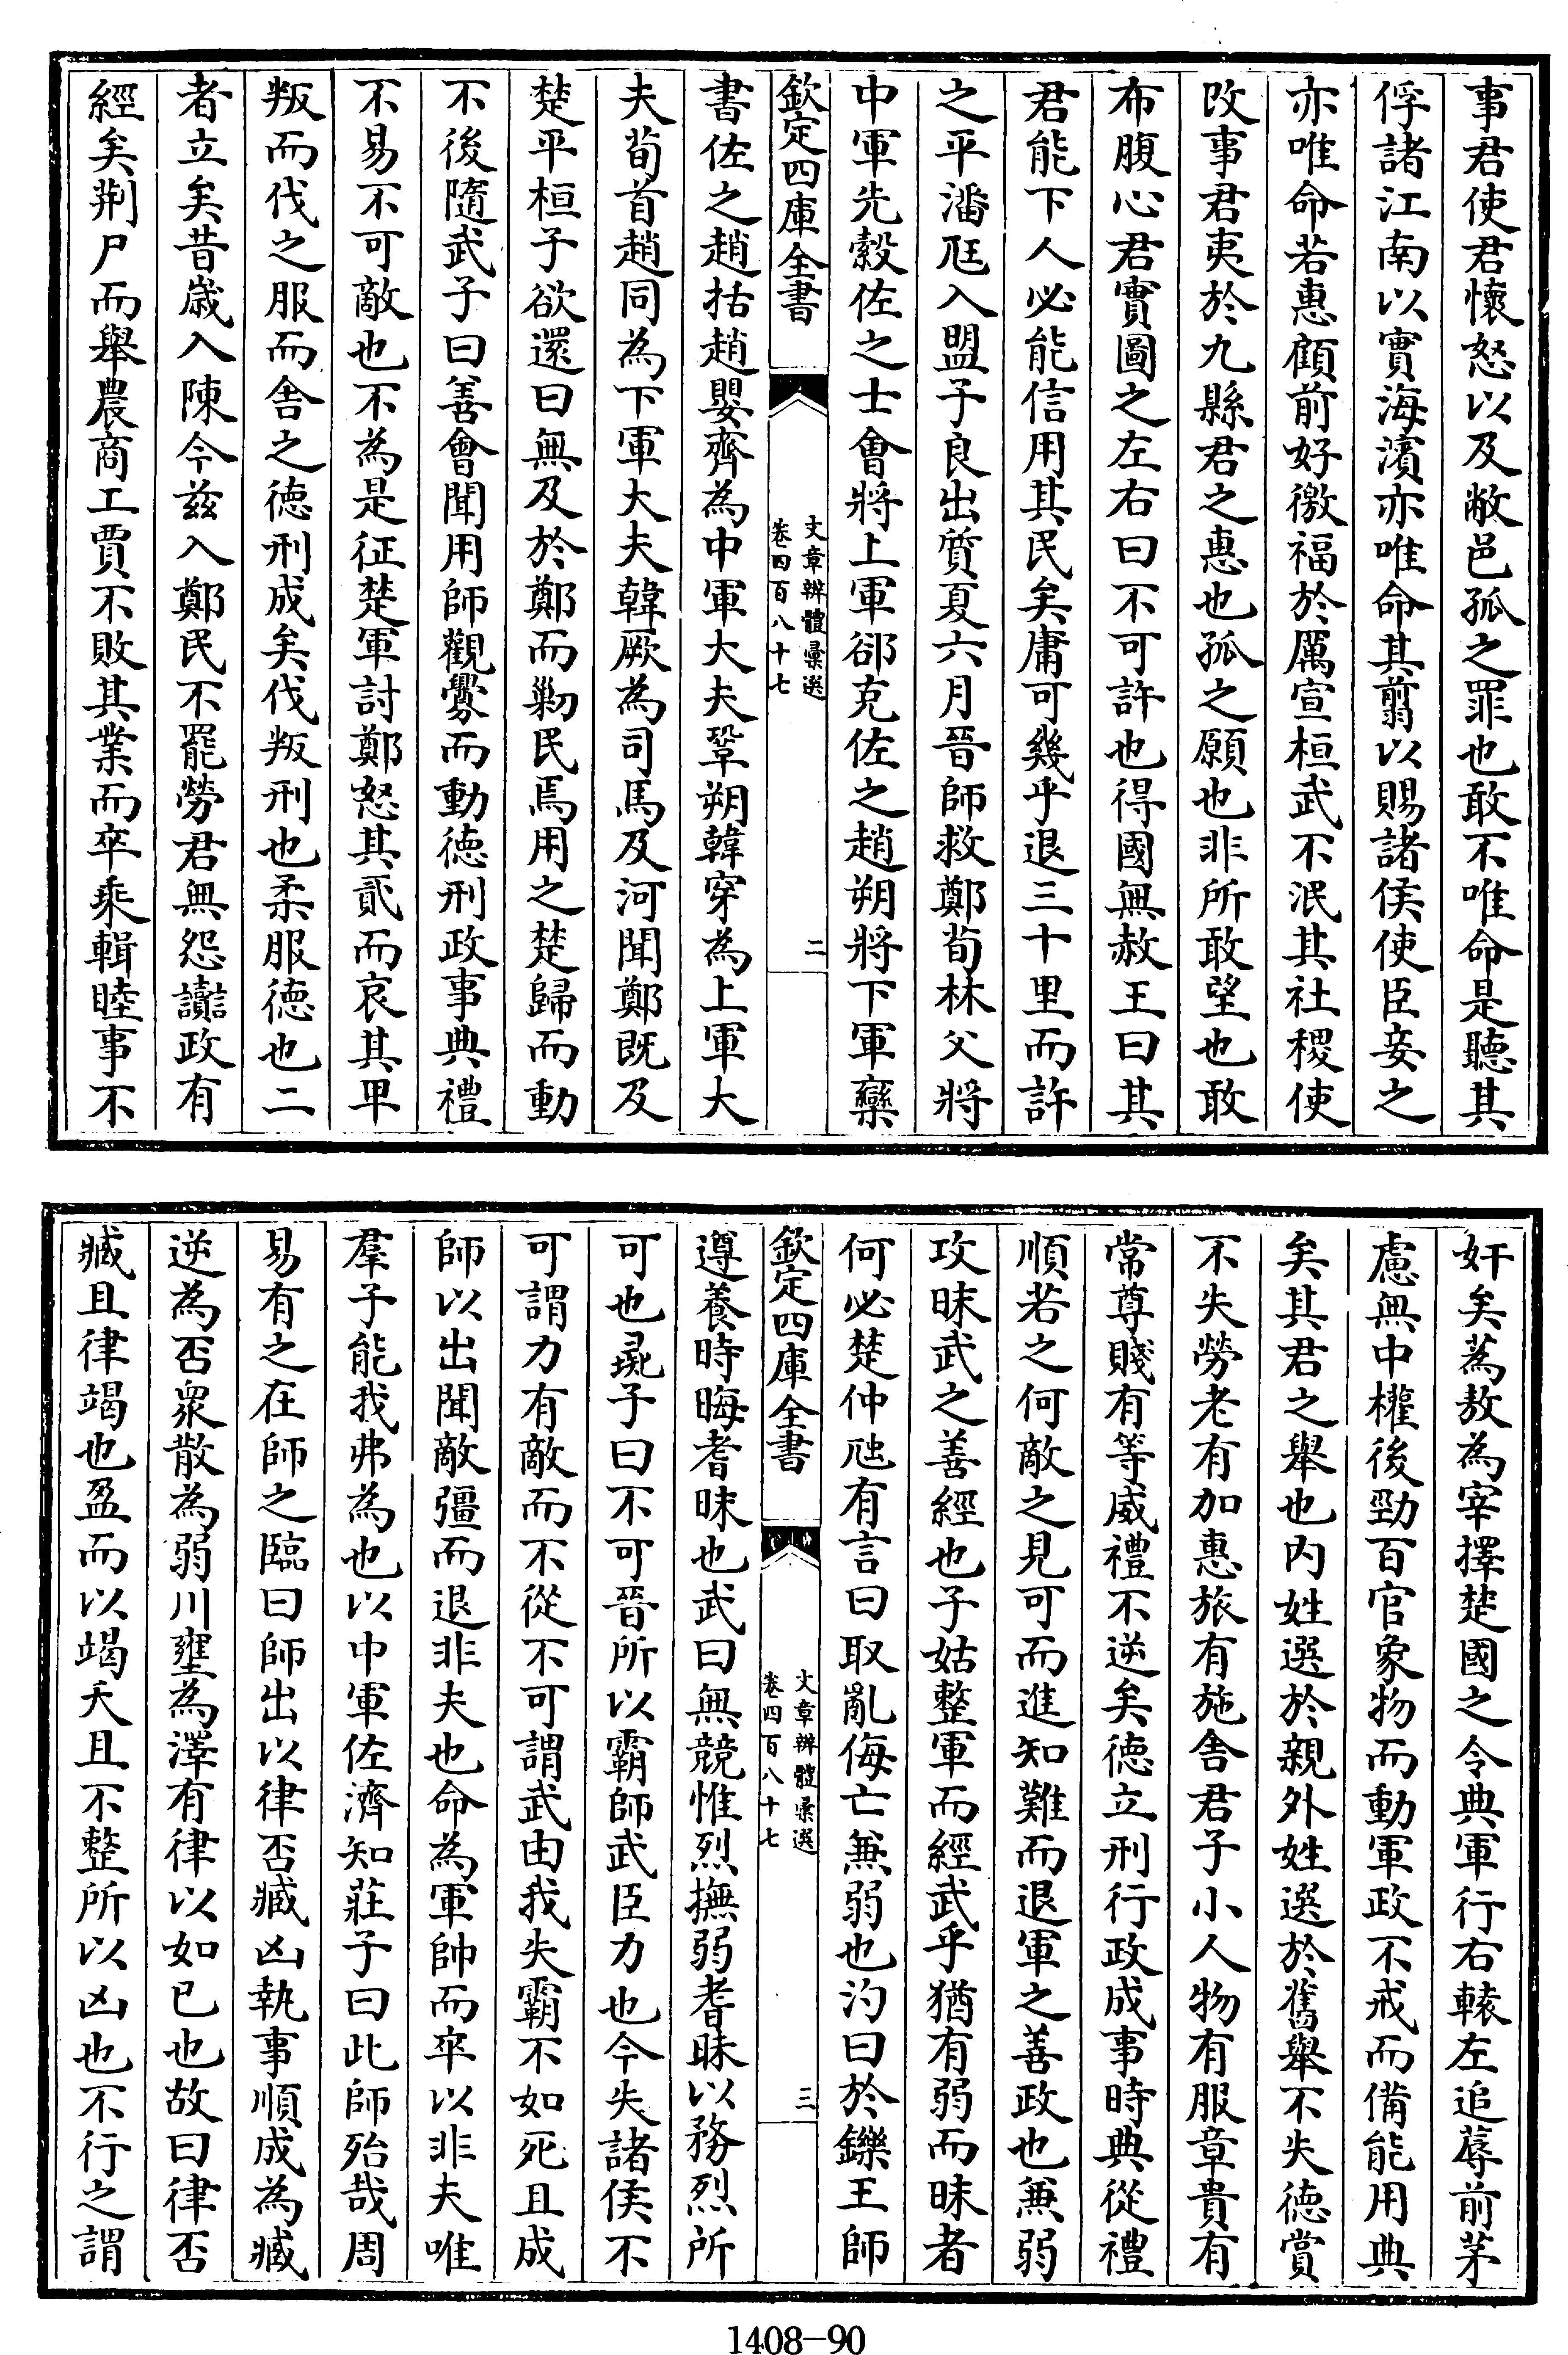 事君使君懷怒以及敝邑孤之罪也敢不唯命是聽其
俘諸江南以實海濱亦唯命其翦以賜諸侯使臣妾之
亦唯命若惠顧前好徼福於厲宣桓武不泯其社稷使
改事君夷於九縣君之惠也孤之願也非所敢望也敢
布腹心君實圖之左右曰不可許也得國無赦王曰其
君能下人必能信用其民矣庸可幾乎退三十里而許
之平潘尫入盟子良出質夏六月晉師救鄭荀林父將
中軍先縠佐之士會將上軍郤克佐之趙朔將下軍欒
欽定四庫全書
文章辨體彙選
卷四百八十七
二
書佐之趙括趙嬰齊為中軍大夫鞏朔韓穿為上軍大
夫荀首趙同為下軍大夫韓厥為司馬及河聞鄭既及
楚平桓子欲還曰無及於鄭而勦民焉用之楚歸而動
不後隨武子曰善會聞用師觀釁而動德刑政事典禮
不易不可敵也不為是征楚軍討鄭怒其貳而哀其卑
叛而伐之服而舎之德刑成矣伐叛刑也柔服德也二
者立矣昔歲入陳今兹入鄭民不罷勞君無怨讟政有
經矣荆尸而舉農商工賈不敗其業而卒乘輯睦事不
奸矣蒍敖為宰擇楚國之令典軍行右轅左追蓐前茅
慮無中權後勁百官象物而動軍政不戒而備能用典
矣其君之舉也内姓選於親外姓選於舊舉不失德賞
不失勞老有加惠旅有施舎君子小人物有服章貴有
常尊賤有等威禮不逆矣德立刑行政成事時典從禮
順若之何敵之見可而進知難而退軍之善政也兼弱
攻昧武之善經也子姑整軍而經武乎猶有弱而昧者
何必楚仲虺有言曰取亂侮亡兼弱也汋曰於鑠王師
欽定四庫全書
文章辨體彙選
卷四百八十七
三
遵養時晦耆昧也武曰無競惟烈撫弱耆昧以務烈所
可也彘子曰不可晉所以霸師武臣力也今失諸侯不
可謂力有敵而不從不可謂武由我失霸不如死且成
師以出聞敵彊而退非夫也命為軍帥而卒以非夫唯
羣子能我弗為也以中軍佐濟知莊子曰此師殆哉周
易有之在師之臨曰師出以律否臧凶執事順成為臧
逆為否衆散為弱川壅為澤有律以如已也故曰律否
臧且律竭也盈而以竭夭且不整所以凶也不行之謂
1408-90